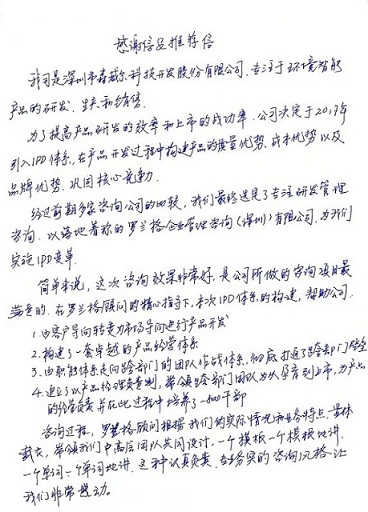 感谢信及推荐信
我司是深圳市森威尔科技开发股份有限公司，专注于环境智能
产品的研发、生产和销售。
为了提高产品研发的效率和上市的成功率，公司决定于2017年
引入IPD体系，在产品开发过程中构建产品的质量优势、成本优势以及
品牌优势，巩固核心竞争力。
经过前期多家咨询公司的比较，我们最终选定了专注研发管理
咨询、以落地着称的罗兰格企业管理咨询（深圳）有限公司，为我们
实施IPD变革。
简单来说，这次咨询效果非常好，是公司所做的咨询项目最
满意的。在罗兰格顾问的精心指导下，本次IPD体系的构建，帮助公司：
1. 由客户导向转变为市场导向进行产品开发
2. 构建了一套卓越的产品经营体系
3. 由职能体系走向跨部门的团队作战体系，彻底打通了跨部门壁垒
4. 建立了以产品经理负责制，带领跨部门团队为从孕育到上市，为产品
的经营负责，并在此过程中培养了一批干部
咨询过程，罗兰格顾问根据我们的实际情况和业务特点，量体
裁衣，带领我们中高层团队共同设计，一个模板一个模板地讲，
一个单词一个单词地讲，这种认真负责、务实的咨询风格让
我们非常感动。